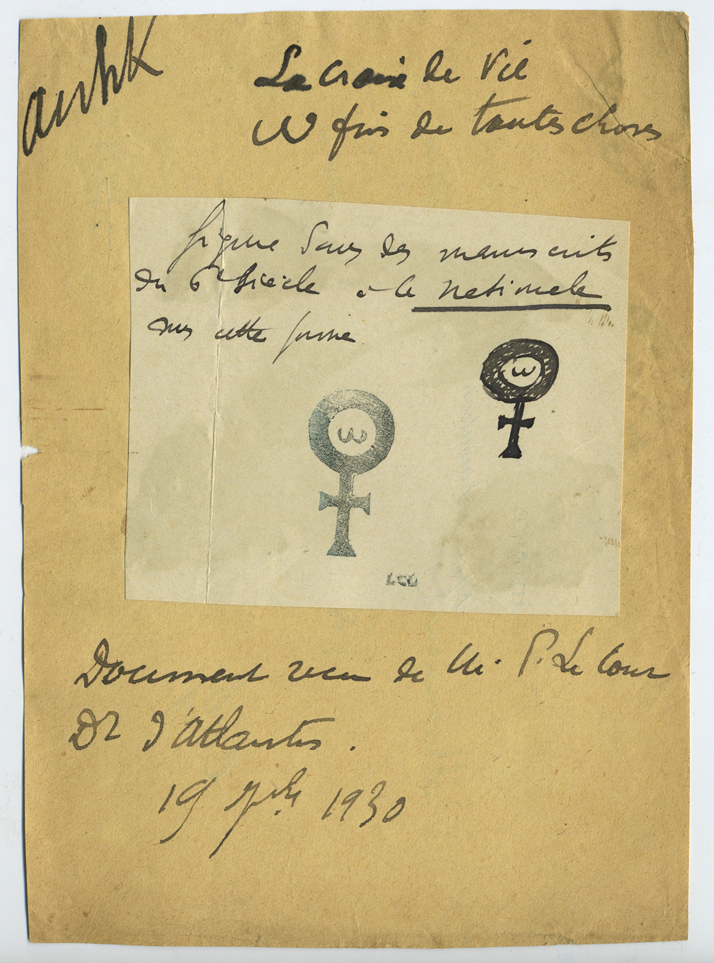 ankh
La croix de Vie
ω fin de toutes choses
figure dans des manuscrits
du 6e siècle à la Nationale
sous cette forme
ω
ω
Document reçu de M. P. Le Cour
Dr d'Atlantis.
19 7bre 1930